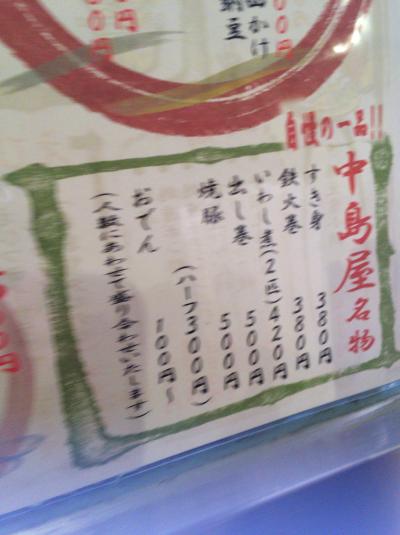 自慢の一品!!
中島屋名物
すき身 380円
鉄火巻 380円
いわし煮(2匹) 420円
出し巻 500円
焼豚 500円
(ハーフ300円)
おでん 100円~
(人数にあわせて盛り合わせいたします)